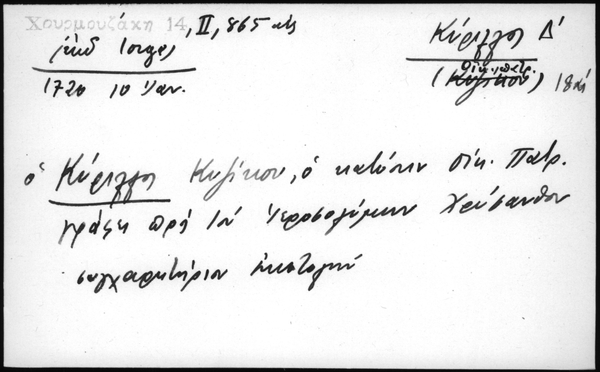 Χουρμουζάκη 14, II, 865 κἑ
ἐκδ Iorga
1720 10 Ἰαν.
Κύριλλος Δ΄
οἰκ. πατρ.
(Κυζίκου) 18 αἰ
ὁ Κύριλλος Κυζίκου, ὁ κατόπιν οἰκ. Πατρ.
γράφει πρὸς τὸν Ἱεροσολύμων Χρύσανθον
συγχαρητήριον ἐπιστολήν